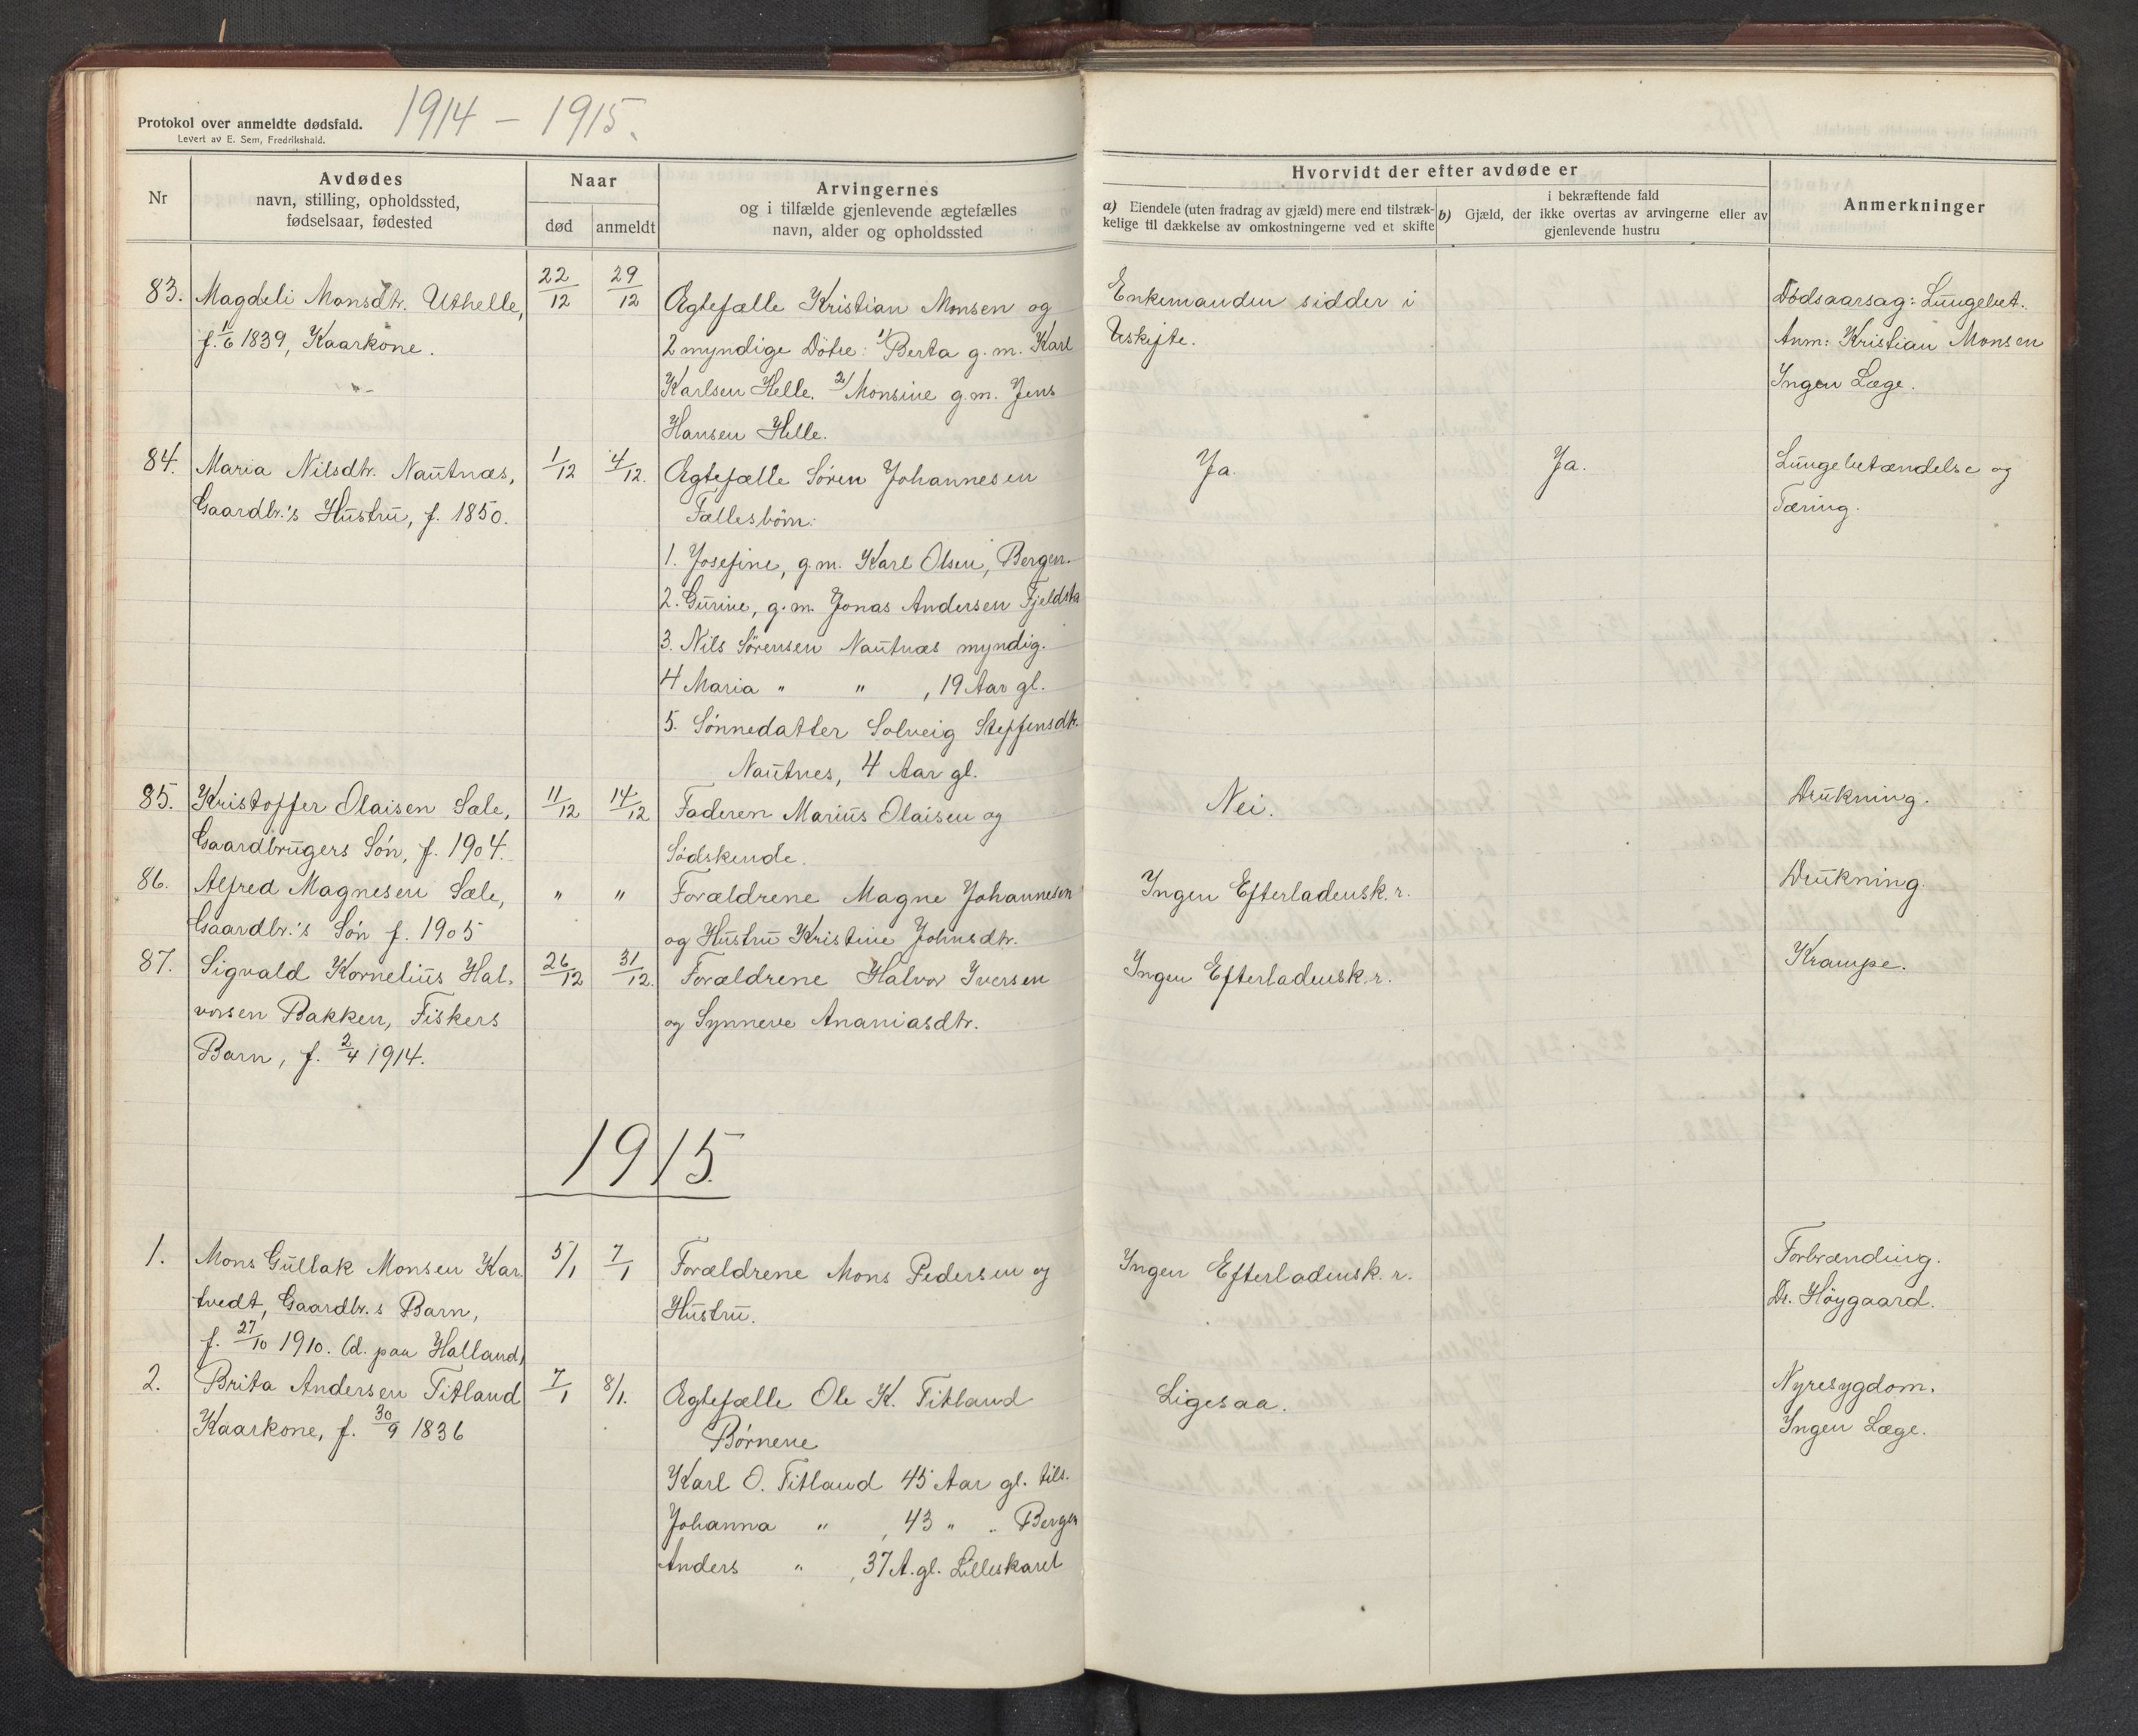 Protokol over anmeldte dødsfald.
Levert av E. Sem, Fredrikshald.
1914 – 1915.
Nr
Avdødes
navn, stilling, opholdssted,
fødselsaar, fødested
Naar
død
anmeldt
Arvingernes
og i tilfælde gjenlevende ægtefælles
navn, alder og opholdssted
Hvorvidt der efter avdøde er
a) Eiendele (uten fradrag av gjæld) mere end tilstræk-
kelige til dækkelse av omkostningerne ved et skifte
i bekræftende fald
b) Gjæld, der ikke overtas av arvingerne eller av
gjenlevende hustru
Anmerkninger
83.
Magdeli Monsdtr. Uthelle,
f. 1/6 1839, Kaarkone.
22/12
29/12
Ægtefælle Kristian Monsen og
2 myndige Døtre: 1/ Berta g. m. Karl
Karlsen Helle. 2/ Monsine g. m. Jens
Hansen Helle.
Enkemanden sidder i
Uskifte.
Dødsaarsag: Lungebet.
Anm: Kristian Monsen
Ingen Læge.
84.
Maria Nilsdtr. Nautnæs,
Gaardbr.'s Hustru, f. 1850.
1/12
4/12.
Ægtefælle Søren Johannesen
Fællesbørn:
1. Josefine, g.m. Karl Olsen, Bergen.
2. Gurine, g.m. Jonas Andersen Fjeldsta
3. Nils Sørensen Nautnæs myndig.
4 Maria " " , 19 Aar gl.
5. Sønnedatter Solveig Steffensdtr.
Nautnes, 4 Aar gl.
Ja.
Ja.
Lungebetændelse og
Tæring.
85.
Kristoffer Olaisen Sæle,
Gaardbrugers Søn, f. 1904.
11/12
14/12
Faderen Marius Olaisen og
Sødskende.
Nei.
Drukning.
86.
Alfred Magnesen Sæle,
Gaardbr.'s Søn f. 1905
"
"
Forældrene Magne Johannesen
og Hustru Kristine Johnsdtr.
Ingen Efterladensk. r.
Drukning.
87.
Sigvald Kornelius Hal-
vorsen Bakken, Fiskers
Barn, f. 2/4 1914.
26/12
31/12.
Forældrene Halvor Iversen
og Synneve Ananiasdtr.
Ingen Efterladensk. r.
Krampe.
1915.
1.
Mons Gullak Monsen Kar-
tvedt, Gaardbr.s Barn,
f. 27/10 1910. (d. paa Halland)
5/1
7/1
Forældrene Mons Pedersen og
Hustru.
Ingen Efterladensk. r.
Forbrænding.
Dr. Høygaard.
2.
Brita Andersen Titland
Kaarkone, f. 30/9 1836
7/1
8/1.
Ægtefælle Ole K. Titland
Børnene
Karl O. Titland 45 Aar gl. tils.
Johanna " , 43 " " Bergen
Anders " , 37 A. gl. Lilleskaret
Ligesaa.
Nyresygdom.
Ingen Læge.